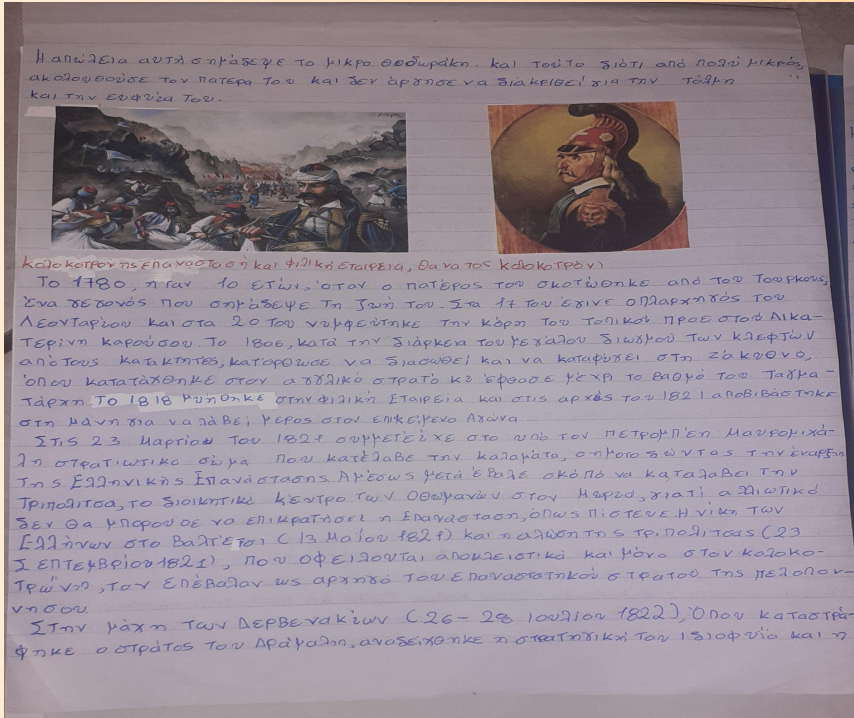 Η απώλεια αυτή σημάδεψε το μικρό Θοδωράκη. και τούτο διότι από πολύ μικρός,
ακολουθούσε τον πατέρα του και δεν άργησε να διακριθεί για την τόλμη
και την ευφυία του.
Κολοκοτρώνης επαναστασή και φιλική εταιρεία, θανατος κολοκοτρόνι
Το 1780, ήταν 10 ετών, όταν ο πατέρας του σκοτώθηκε από του Τουρκους,
ένα γεγονός που σημάδεψε τη ζωή του. Στα 17 του έγινε οπλαρχηγός του
Λεονταρίου και στα 20 του νυμφεύτηκε την κόρη του τοπικού προεστού Αικα-
τερίνη καρούσου. Το 1806, κατά την διάρκεια του μεγάλου διωγμού των κλεφτών
από τους κατακτητές, κατόρθωσε να διασωθεί και να καταφύγει στη Ζάκυνθο,
όπου κατατάχθηκε στον αγγλικό στρατό κι έφθασε μέχρι το βαθμό του ταγμα-
τάρχη. Το 1818 μυήθηκε στην φιλική Εταιρεία και στις αρχές του 1821 αποβιβάστηκε
στη μάνη για να λάβει μέρος στον επικείμενο Αγώνα
Στις 23 Μαρτίου του 1821 συμμετείχε στο υπό τον πετρομπέη Μαυρομιχά-
λη στρατιωτικό σώμα που κατέλαβε την καλαμάτα, σηματοδώντας την έναρξη
της Ελληνικής Επανάστασης. Αμέσως μετά έβαλε σκοπό να καταλάβει την
Τριπολιτσά, το διοικητικό κέντρο των Οθωμανών στον Μωριά, γιατί αλλιωτικά
δεν θα μπορούσε να επικρατήσει η Επανάσταση, όπως πίστευε. Η νίκη των
Ελλήνων στο Βαλτέτσι (13 Μαΐου 1821) και η άλωση της τριπολιτσάς (23
Σεπτεμβρίου 1821), που οφείλονται αποκλειστικά και μόνο στον κολοκο-
τρώνη, τον επέβαλαν ως αρχηγό του επαναστατηκού στρατού της πελοπον-
νήσου.
Στην μάχη των Δερβενακίων (26-28 Ιουλίου 1822), Όπου καταστρά-
φηκε ο στρατος του Δράμαλη, αναδείχθηκε η στρατηγική του ιδιοφυία και η